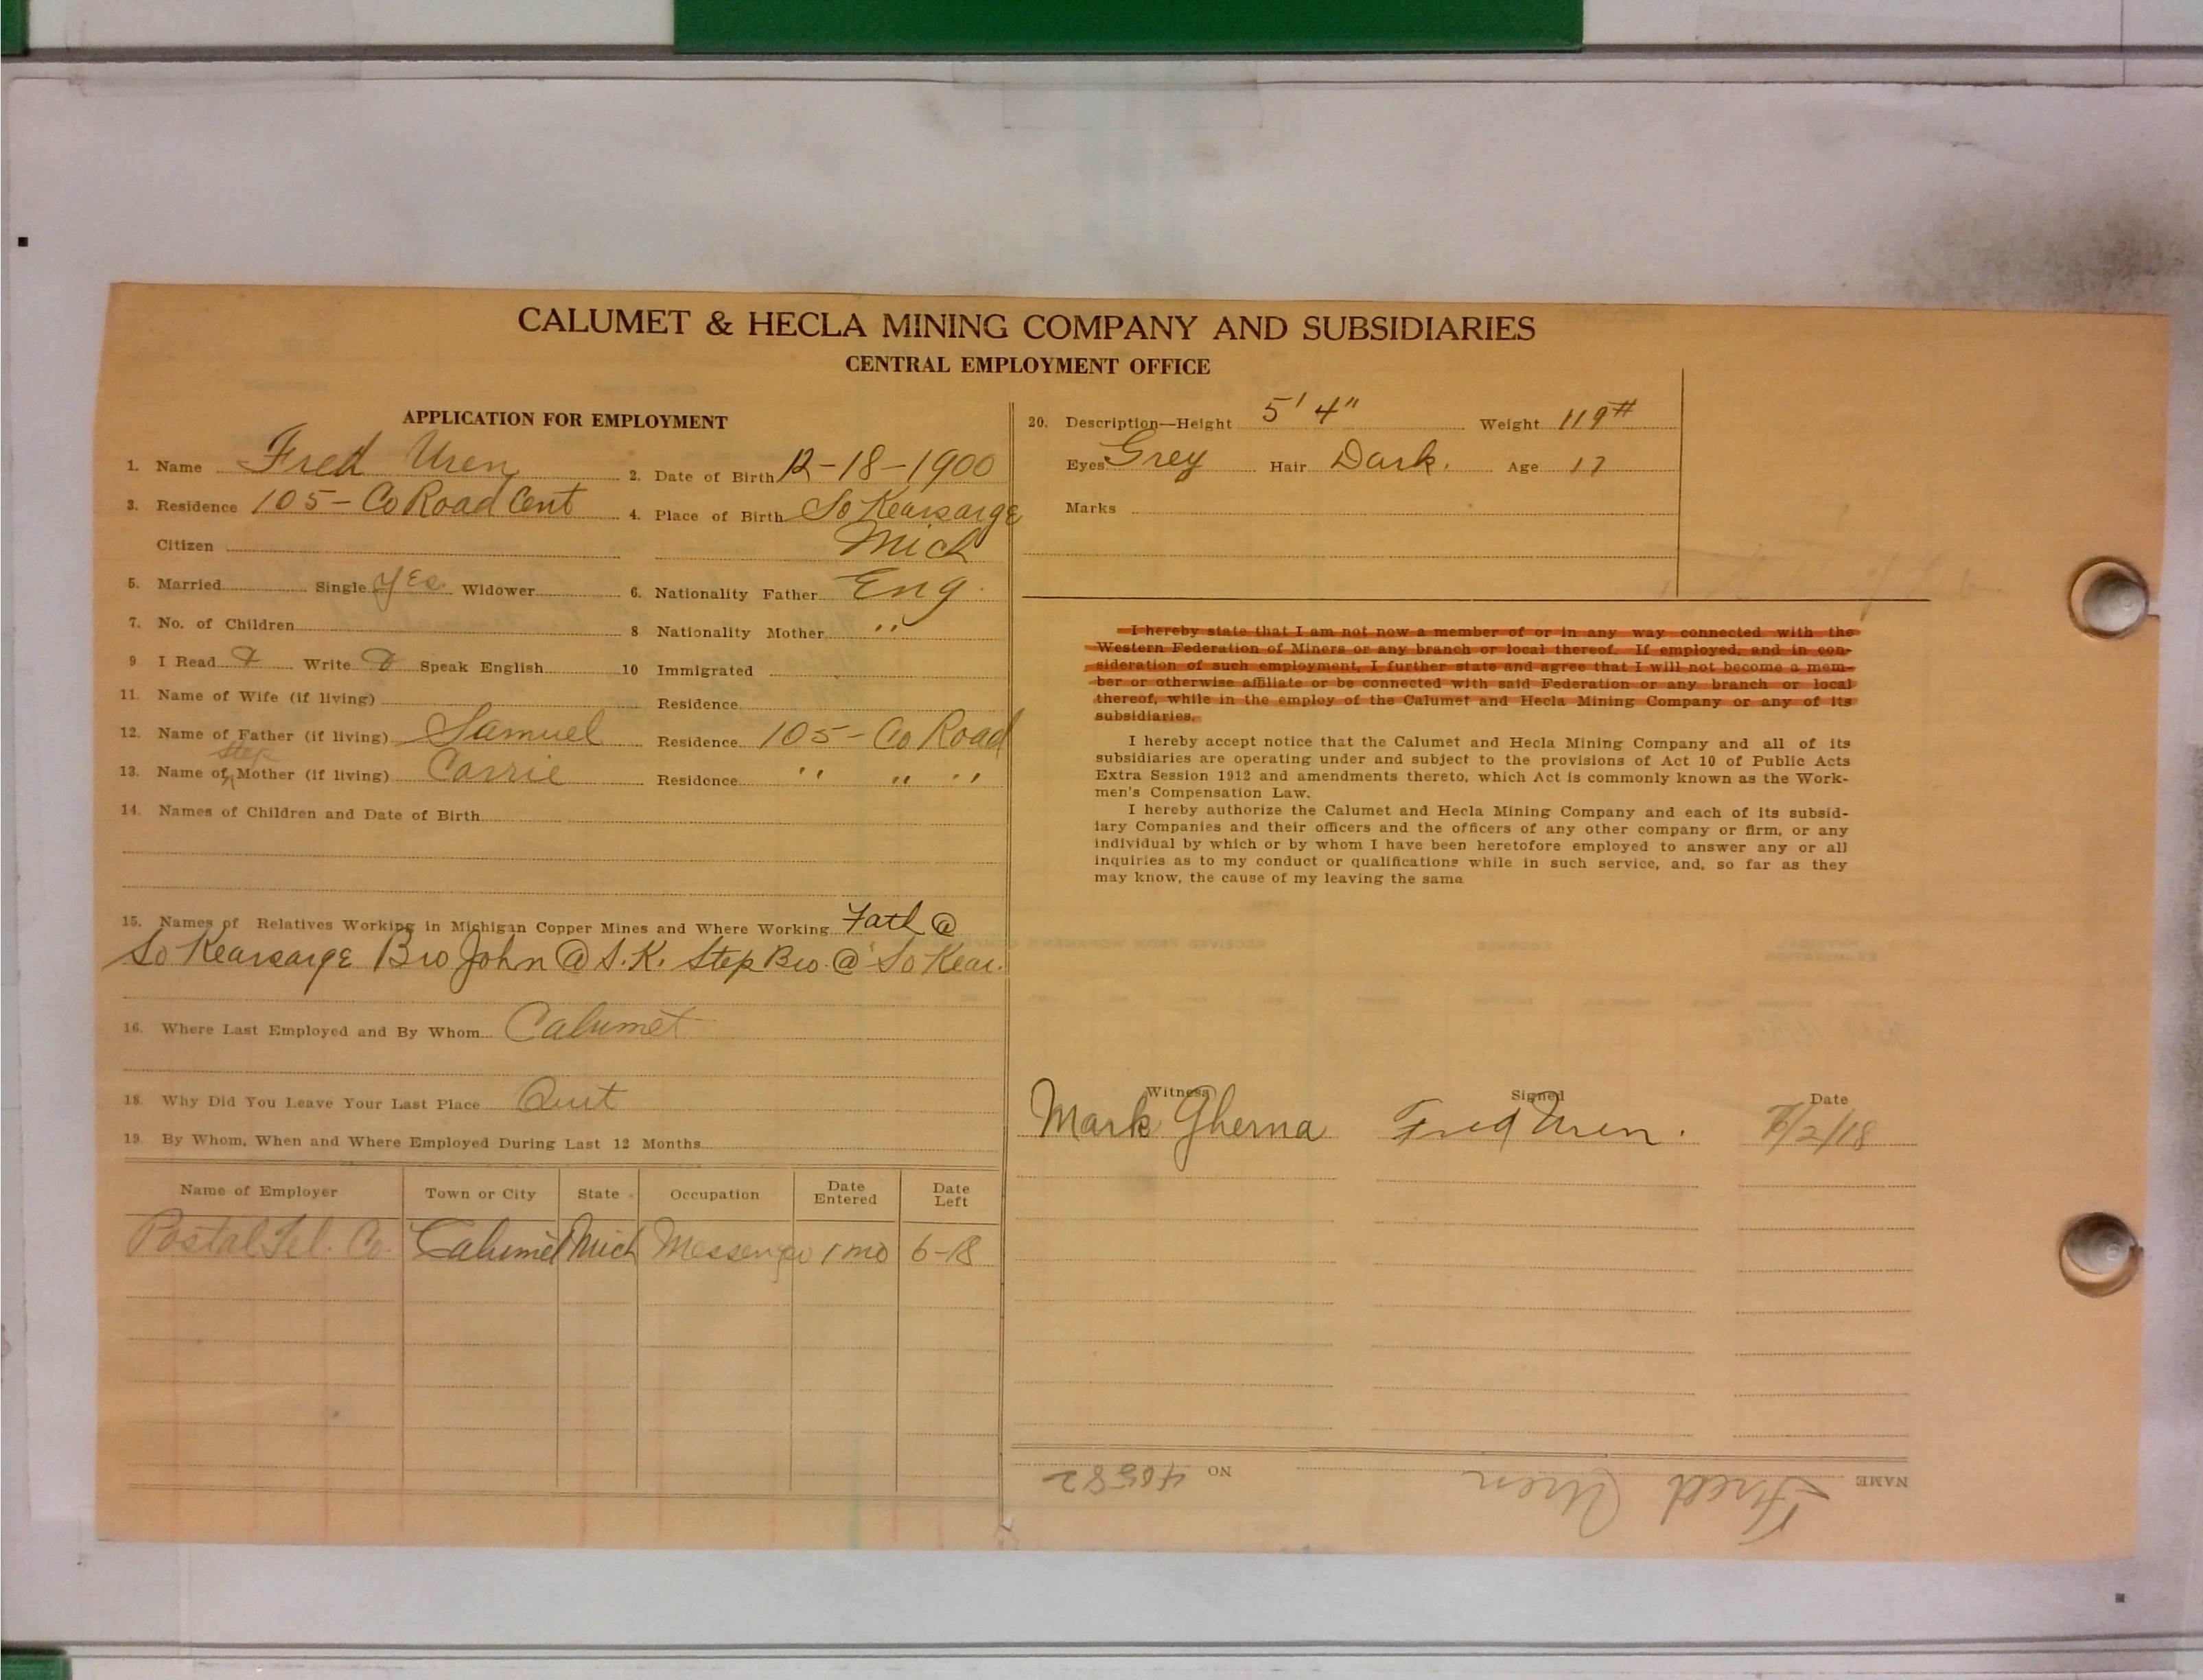 CALUMET & HECLA MINING COMPANY AND SUBSIDIARIES
CENTRAL EMPLOYMENT OFFICE
APPLICATION FOR EMPLOYMENT
1. Name Fred Uren 2. Date of Birth 12-18-1900
3. Residence 105- Co Road Cent 4. Place of Birth So Kearsarge
Citizen Mich
5. Married Single Yes Widower 6. Nationality Father Eng.
7. No. of Children 8 Nationality Mother " 
9 I Read Write Speak English 10 Immigrated
11. Name of Wife (if living) Residence
12. Name of Father (if living) Samuel Residence 105- Co Road
step
13. Name of Mother (if living) Carrie Residence " " "
14. Names of Children and Date of Birth
15. Names of Relatives Working in Michigan Copper Mines and Where Working Fath @
So Kearsarge Bro John @ S.K. Step Bro. @ So Kear.
16. Where Last Employed and By Whom Calumet
18. Why Did You Leave Your Last Place Quit
19. By Whom, When and Where Employed During Last 12 Months
Name of Employer Town or City State Occupation Date Entered Date Left
Postal Tel. Co. Calumet Mich Messenger 1 mo 6-18
20. Description—Height 5' 4" Weight 119#
Eyes Grey Hair Dark. Age 17
Marks
I hereby state that I am not now a member of or in any way connected with the
Western Federation of Miners or any branch or local thereof. If employed, and in con-
sideration of such employment, I further state and agree that I will not become a mem-
ber or otherwise affiliate or be connected with said Federation or any branch or local
thereof, while in the employ of the Calumet and Hecla Mining Company or any of its
subsidiaries.
I hereby accept notice that the Calumet and Hecla Mining Company and all of its
subsidiaries are operating under and subject to the provisions of Act 10 of Public Acts
Extra Session 1912 and amendments thereto, which Act is commonly known as the Work-
men's Compensation Law.
I hereby authorize the Calumet and Hecla Mining Company and each of its subsid-
iary Companies and their officers and the officers of any other company or firm, or any
individual by which or by whom I have been heretofore employed to answer any or all
inquiries as to my conduct or qualifications while in such service, and, so far as they
may know, the cause of my leaving the same
Witness Signed Date
Mark Gherna Fred Uren. /2/18
NAME Fred Uren NO 40582